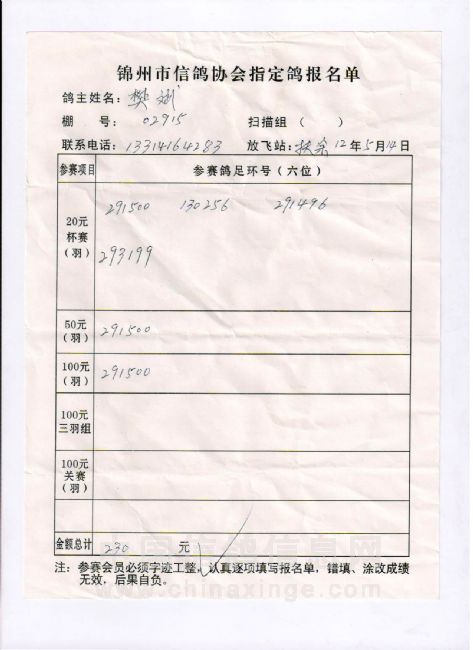 锦州市信鸽协会指定鸽报名单
鸽主姓名：樊斌
棚 号：02915 扫描组（ ）
联系电话：13314164283 放飞站：扶余 12年5月14日
参赛项目 参赛鸽足环号（六位）
20元
杯赛
（羽）
291500 130256 291496
293199
50元
（羽）
291500
100元
（羽）
291500
100元
三羽组
100元
关赛
（羽）
金额总计 230 元
注：参赛会员必须字迹工整，认真逐项填写报名单，错填、涂改成绩
无效，后果自负。
中国信鸽信息网
www.chinaxinge.com